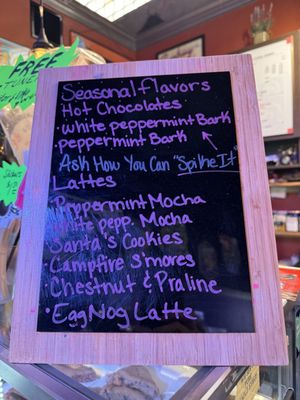 FREE
Seasonal flavors
Hot Chocolates
• white peppermint Bark
• peppermint Bark
Ask How You Can "Spike It"
Lattes
Peppermint Mocha
White pepp. Mocha
Santa's Cookies
• Campfire S'mores
• Chestnut & Praline
• Egg Nog Latte